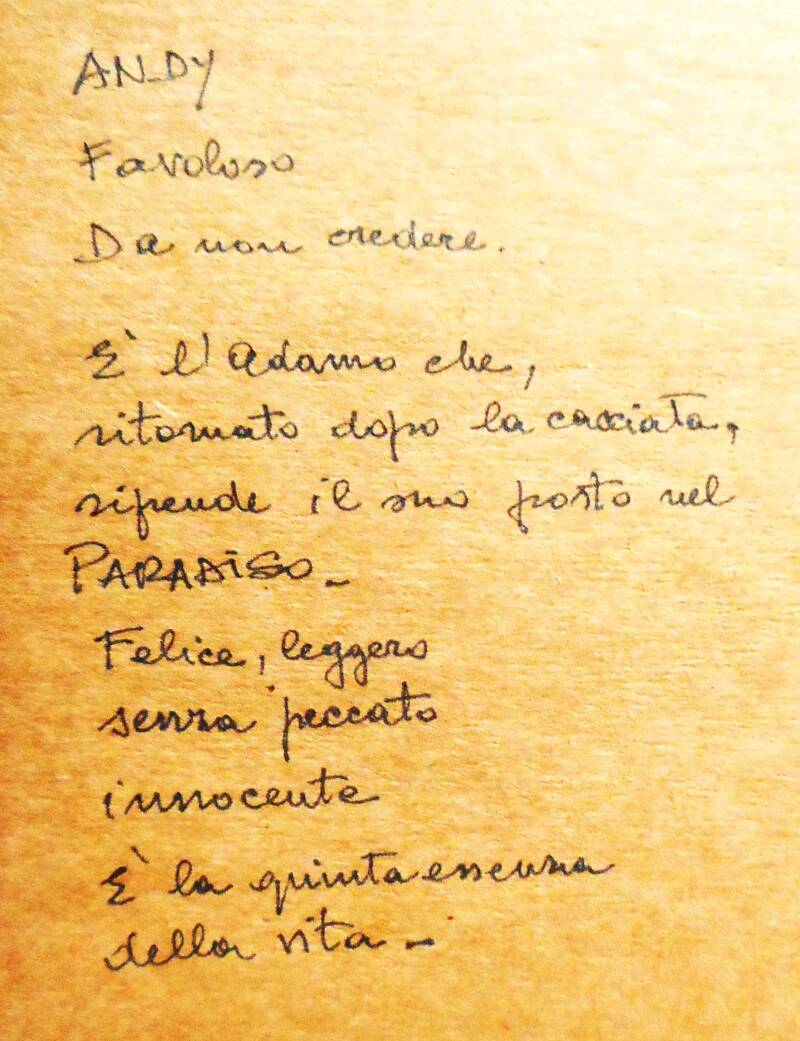 ANDY
Favoloso
Da non credere.
È l'Adamo che,
ritornato dopo la cacciata,
ripende il suo posto nel
PARADISO_
Felice, leggero
senza peccato
innocente
È la quintaessenza
della vita_